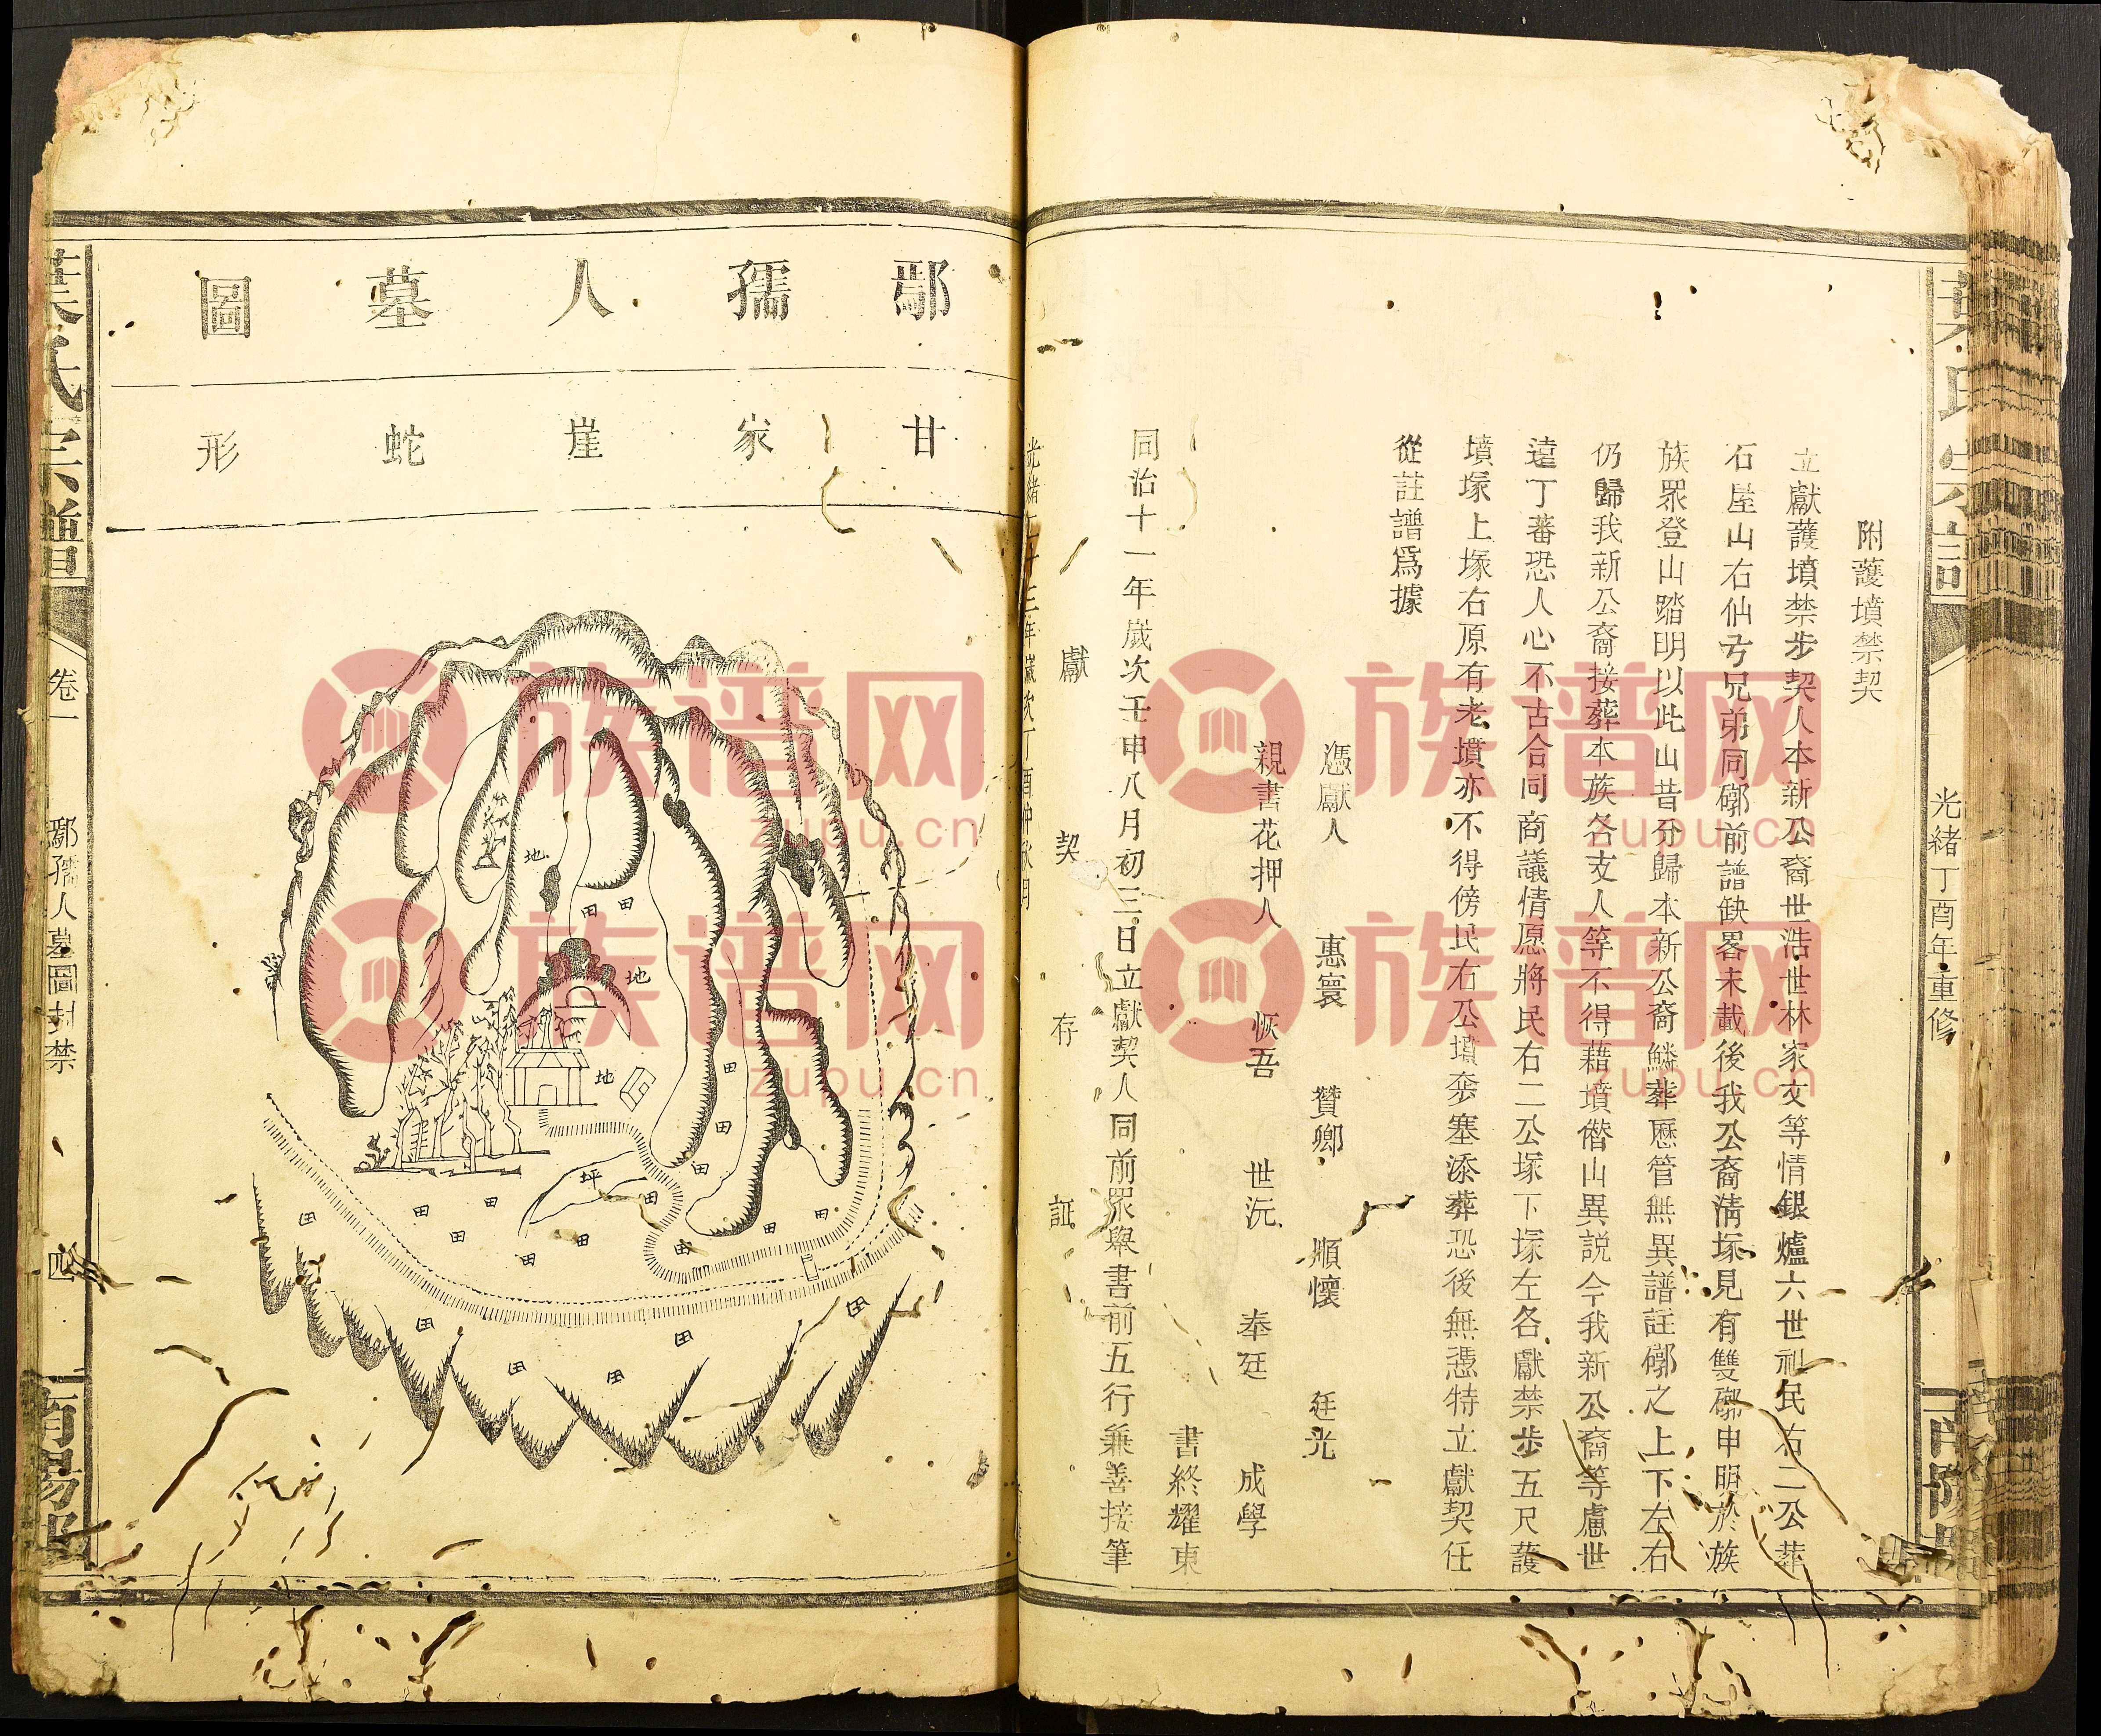 葉氏宗譜
光緒丁酉年重修
南陽郡
附護墳禁契
立獻護墳禁步契人本新公裔世浩世林家文等情銀爐六世祖民右二公葬
石屋山右仙方兄弟同槨前譜缺畧未載後我公裔清塚見有雙槨申明於族
族眾登山踏明以此山昔分歸本新公裔鱗葬歷管無異譜註槨之上下左右
仍歸我新公裔接葬本族各支人等不得藉墳偕山異説今我新公裔等慮世
遠丁蕃恐人心不古合同商議情愿將民右二公塚下塚左各獻禁步五尺護
墳塚上塚右原有老墳亦不得傍民右公墳 塞添葬恐後無憑特立獻契任
從註譜爲據
憑獻人 惠寰 贊卿 順懷 廷光
親書花押人 恢吾 世沅 奉廷 成學
書終耀東
同治十一年歲次壬申八月初三日立獻契人同前眾與書前五行兼善接筆
獻契存証
光緒二十三年歲次丁酉仲秋月
鄢孺人墓圖
甘家崖蛇形
地
田 田
地
地
田
田
田
坪
田
田 田 田 田 田 田 田 田 田
田 田 田 田 田
葉氏宗譜
卷一
鄢孺人墓圖封禁
四
南陽郡
族谱网
zupu.cn
族谱网
zupu.cn
族谱网
zupu.cn
族谱网
zupu.cn